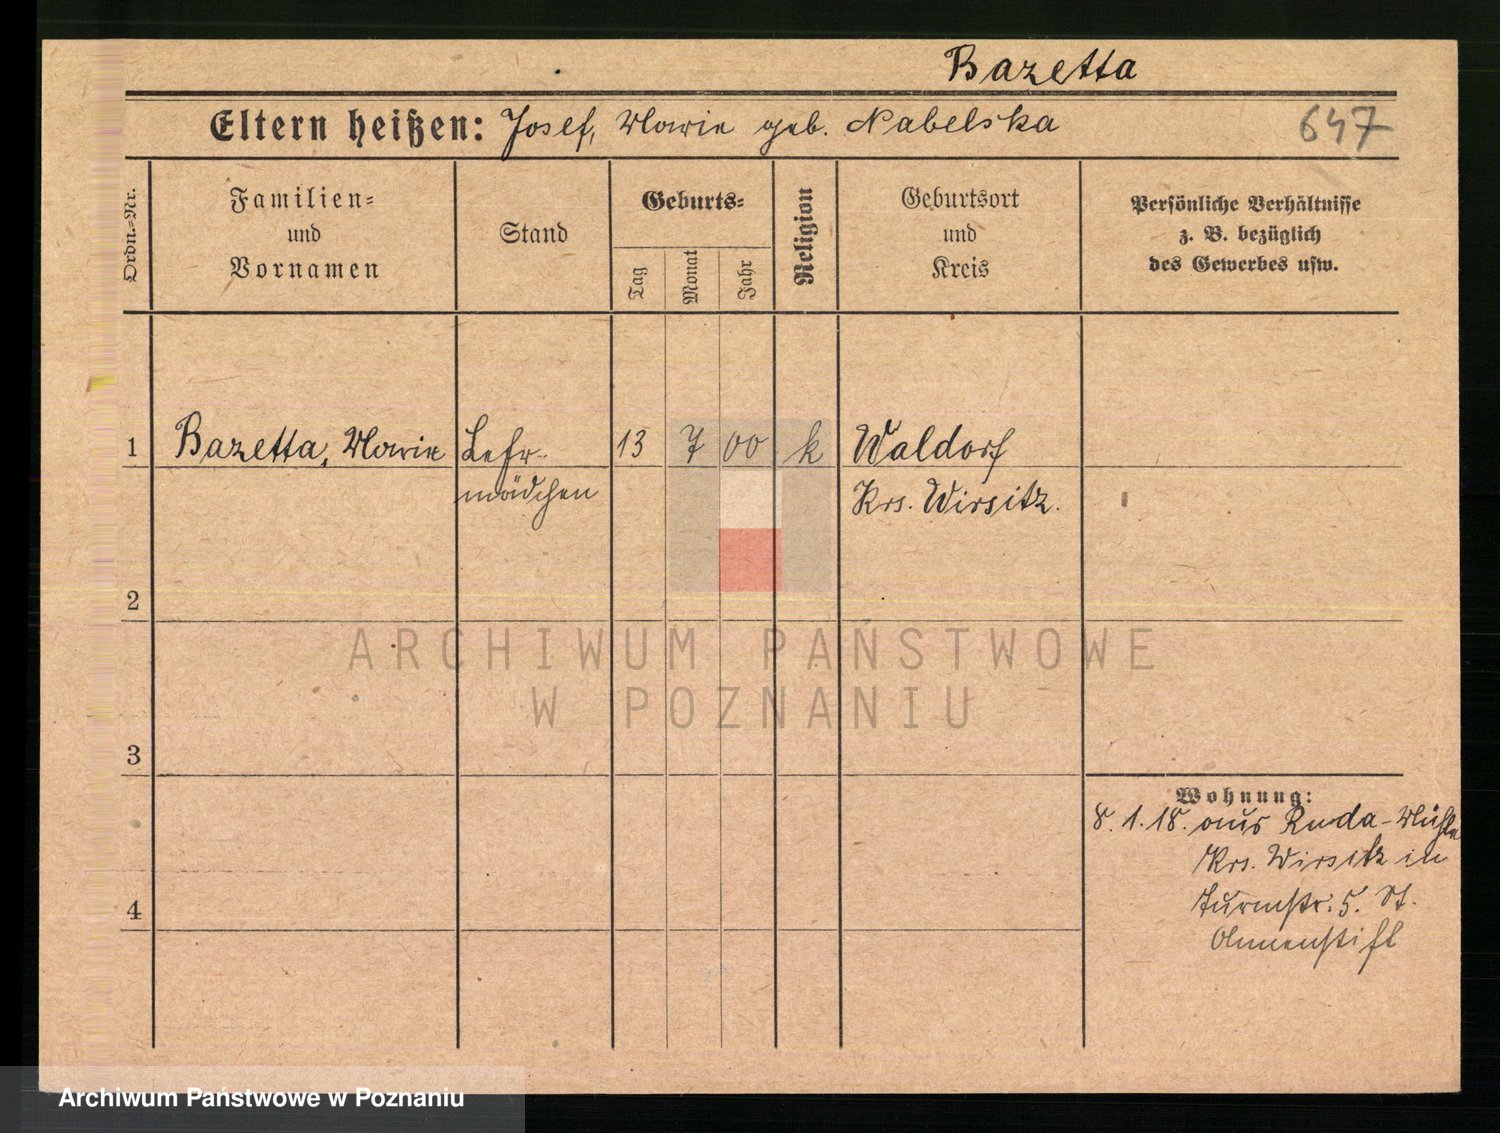 Bazetta
Eltern heißen: Josef, Marie geb. Nabelska
647
Ordn.=Nr.
Familien=
und
Vornamen
Stand
Geburts=
Tag
Monat
Jahr
Religion
Geburtsort
und
Kreis
Persönliche Verhältnisse
z. B. bezüglich
des Gewerbes usw.
1 Bazetta, Marie Lehr- 13 7 00 k Waldorf
mädchen Krs. Wirsitz.
2
ARCHIWUM PAŃSTWOWE
W POZNANIU
3
Wohnung:
8.1.18. aus Ruda-Mühle
Krs. Wirsitz in
Turmstr. 5. St.
Annenstift
4
Archiwum Państwowe w Poznaniu